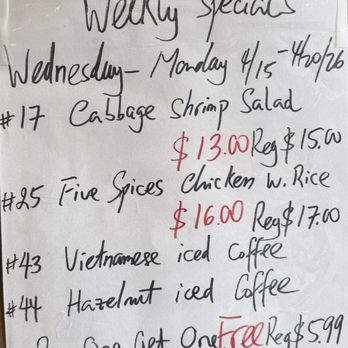 Weekly Specials
Wednesday - Monday 4/15 - 4/20/26
#17 Cabbage Shrimp Salad
$13.00 Reg $15.00
#25 Five Spices Chicken w. Rice
$16.00 Reg $17.00
#43 Vietnamese iced Coffee
#44 Hazelnut iced Coffee
Buy One Get One Free Reg $5.99